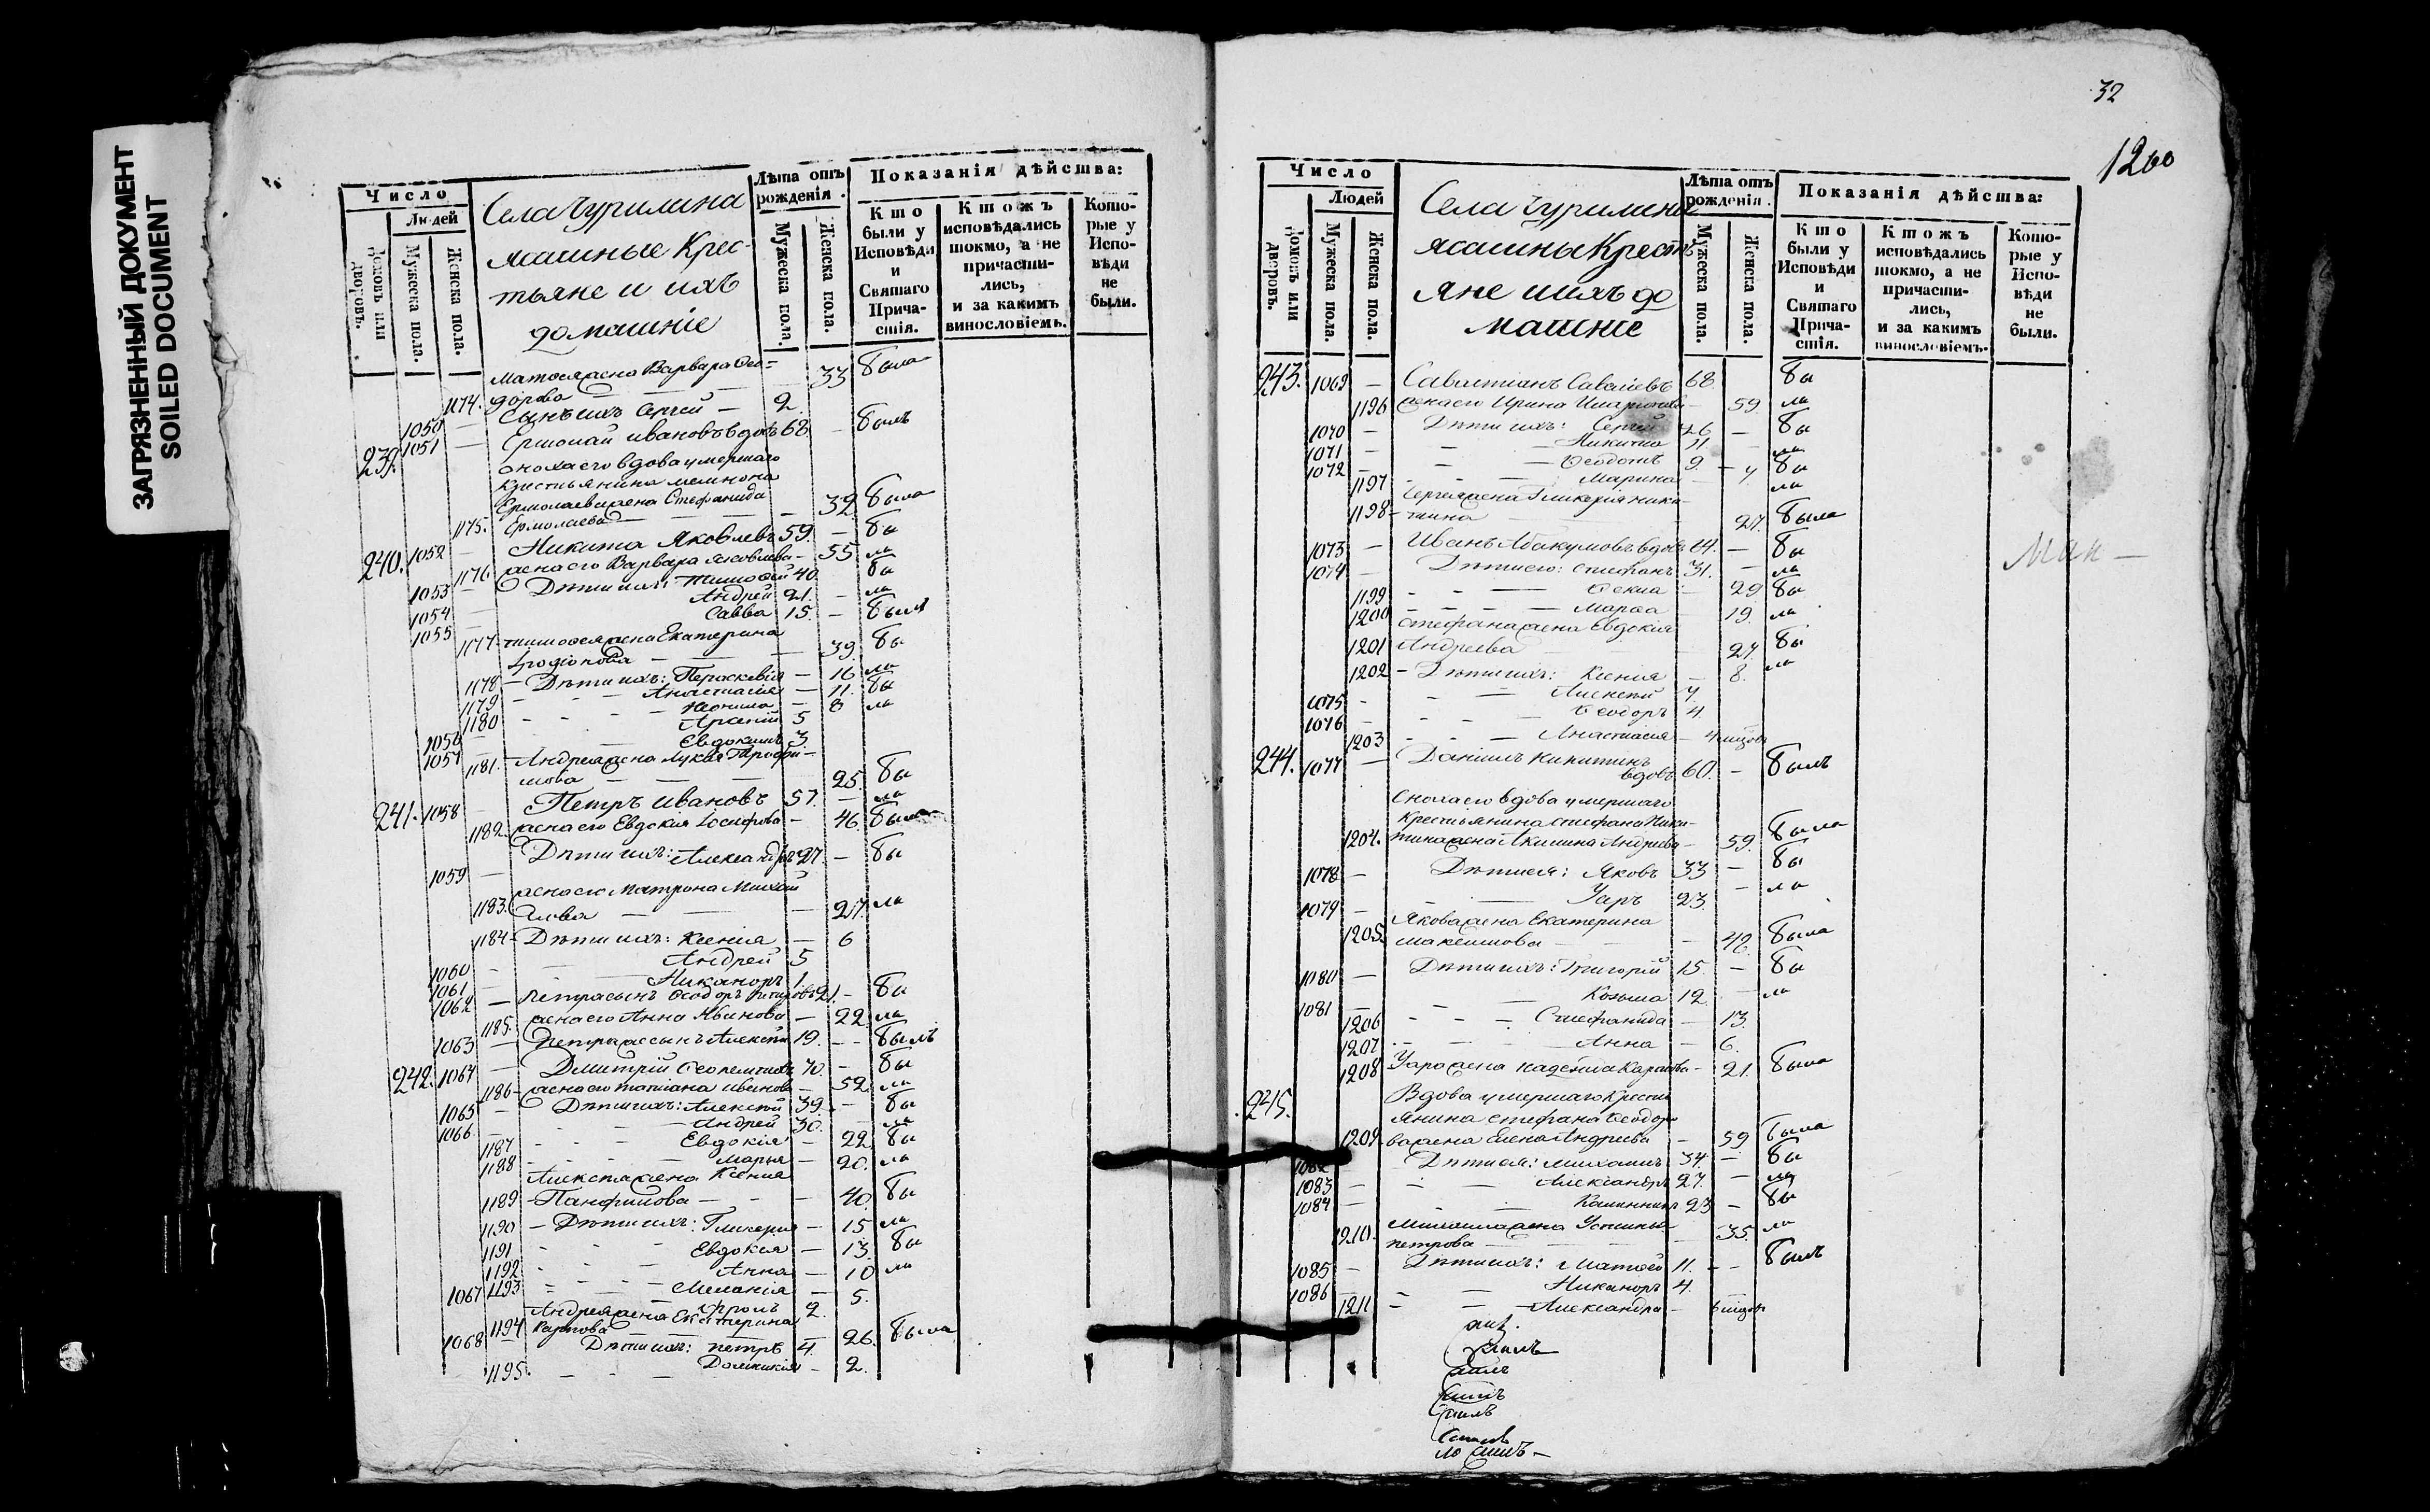 ЗАГРЯЗНЕННЫЙ ДОКУМЕНТ
SOILED DOCUMENT
Число
Людей
Домовъ или дворовъ.
Мужеска пола.
Женска пола.
Села Чурилина
ясашные Крес-
тьяне и ихъ
домашніе
Лѣта отъ рожденія.
Мужеска пола.
Женска пола.
Показанія дѣйства:
Кто были у Исповѣди и Святаго Причастія.
Ктожъ исповѣдались токмо, а не причастились, и за какимъ винословіемъ.
Которые у Исповѣди не были.
жена Варвара Ѳео=
1174. дорова — 33 была
1050 — Сынъ ихъ Сергей — 2
239. 1051 — Ермолай Ивановъ вдовъ 68 — былъ
Сноха его вдова умершаго
крестьянина
Ермолаева жена Стефанида
1175. Ермолаева — 32 была
240. 1052 — Никита Яковлевъ 59. — бы
1176 жена его Варвара Яковлева — 55 ла
1053 — Дѣти ихъ: Тимоѳей 40. бы
1054 — Андрей 21. — ла
1055 — Савва 15. — былъ
1177 Тимоѳея жена Екатерина
Іродіонова — 39. бы
1178 — Дѣти ихъ: Параскевія — 16 ла
1179 — Анастасія — 11. бы
1180 — Неонила — 8 ла
1056 — Арсеній 5
1057 — Евдокимъ 3.
1181. Андрея жена Лукія Трофи-
мова — 25. бы
241. 1058 — Петръ Ивановъ 57. — ла
1182. жена его Евдокія Іосифова — 46. была
1059 — Дѣти ихъ: Александръ 27. — бы
жена его Матрона Михай
1183. лова — 27. ла
1184 — Дѣти ихъ: Ксенія — 6
1060 — Андрей 5
1061 — Никаноръ 1.
1062 — Петра сынъ Ѳеодоръ Петровъ 21. — бы
1185. жена его Анна Иванова — 22 ла
1063 — Петра сынъ Алексѣй 19. — былъ
242. 1064 — Димитрій 70. — бы
1186 — жена его Татіана Иванова — 52. ла
1065 — Дѣти ихъ: Алексѣй 39. — бы
1066 — Андрей 30. — ла
1187 — Евдокія — 22. бы
1188 — Марья — 20. ла
Алексѣя жена Ксенія
1189 — Панфилова — 40. бы
1190 — Дѣти ихъ: Гликерія — 15 ла
1191 — Евдокія — 13. бы
1192 — Анна — 10 ла
1193 — Меланія — 5.
1067 — Фролъ 2.
Андрея жена Екатерина
1194 Карпова — 26. была
1068 — Дѣти ихъ: Петръ 4.
1195. — Домникія — 2.
32
1200
Число
Людей
Домовъ или дворовъ.
Мужеска пола.
Женска пола.
Села Чурилина
ясашны Кресть
яне и ихъ до
машніе
Лѣта отъ рожденія.
Мужеска пола.
Женска пола.
Показанія дѣйства:
Кто были у Исповѣди и Святаго Причастія.
Ктожъ исповѣдались токмо, а не причастились, и за какимъ винословіемъ.
Которые у Исповѣди не были.
243. 1069 — Савастіанъ Савельевъ 68 бы
1196 жена его Ирина — 59 ла
1070 — Дѣти ихъ: Сергей 26 — бы
1071 — Никита 11 — ла
1072 — Ѳеодотъ 9. бы
1197 — Марина — ла
Сергея жена Гликерія Ники-
1198 — тина 27. была
1073 — Иванъ Абакумовъ вдовъ — бы
1074 — Дѣти его: Стефанъ 31. — ла
1199 — Ѳекла — 29 бы
1200 — Марѳа — 19. ла
Стефана жена Евдокія
1201 Андреева 27. бы
1202 — Дѣти ихъ: Ксенія — 8. ла
1075 — Алексѣй
1076 — Ѳеодоръ 4.
1203 — Анастасія —
244. 1077 — Даніилъ Никитинъ
вдовъ 60. — былъ
Сноха его вдова умершаго
Крестьянина Стефана Ники-
1204. тина жена Акилина Андреева — 59 была
1078 — Дѣти ея: Яковъ 33 — бы
1079 — Уаръ 23. — ла
Якова жена Екатерина
1205. Максимова — 42 была
1080 — Дѣти ихъ: Григорій 15 — бы
1081 — Козьма 12. — ла
1206 — Стефанида — 13.
1207 — Анна — 6.
1208 Уара жена Надежда Карпова — 21. была
245. Вдова умершаго Крестья
янина Стефана Ѳеодоро
1209. ва жена Елена Андреева — 59 была
1082 — Дѣти ея: Михаилъ 34. — бы
1083 — Александръ 27. — ла
1084 — Калинникъ 23 — бы
Михаила жена Устинья
1210. Петрова — 35. ла
1085 — Дѣти ихъ: Матѳей 11. — былъ
1086 — Никаноръ 4.
1211 — Александра —